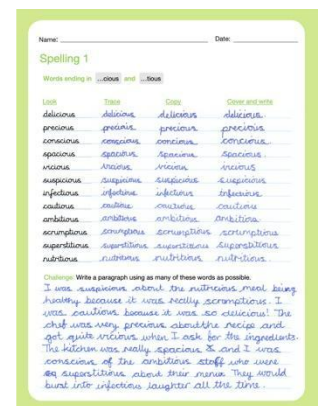 Name: Date:
Spelling 1
Words ending in ...cious and ...tious
Look Trace Copy Cover and write
delicious delicious delicious delicious
precious precious precious precious
conscious conscious concious concious
spacious spacious spacious spacious
vicious vicious vicious vicious
suspicious suspicious suspicious suspicious
infectious infectious infectious infectious
cautious cautious cautious cautious
ambitious ambitious ambitious ambitious
scrumptious scrumptious scrumptious scrumptious
superstitious superstitious superstitious superstitious
nutritious nutritious nutritious nutritious
Challenge: Write a paragraph using as many of these words as possible.
I was suspicious about the nutricious meal being
healthy because it was really scromptious. I
was cautious because it was so delicious! The
chef was very precious about the recipe and
got quite vicious when I ask for the ingredients.
The kitchen was really spacious & and I was
conscious of the ambitious staff who were
superstitious about their menus They would
burst into infectious laughter all the time.